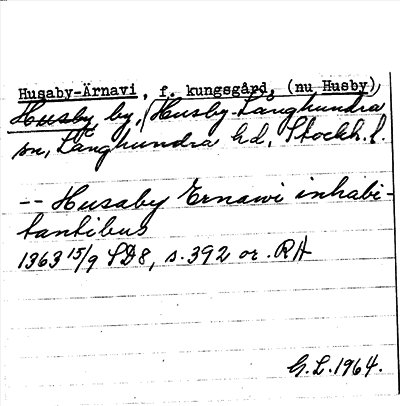 Husaby-Ärnavi, f. kungsgård, (nu Husby)
Husby, by, (Husby-Långhundra
sn, Långhundra hd, Stockh. l.
-- Husaby Ernawi inhabi-
tantibus
1363 15/9 SD8, s. 392 or. RA
G.L. 1964.